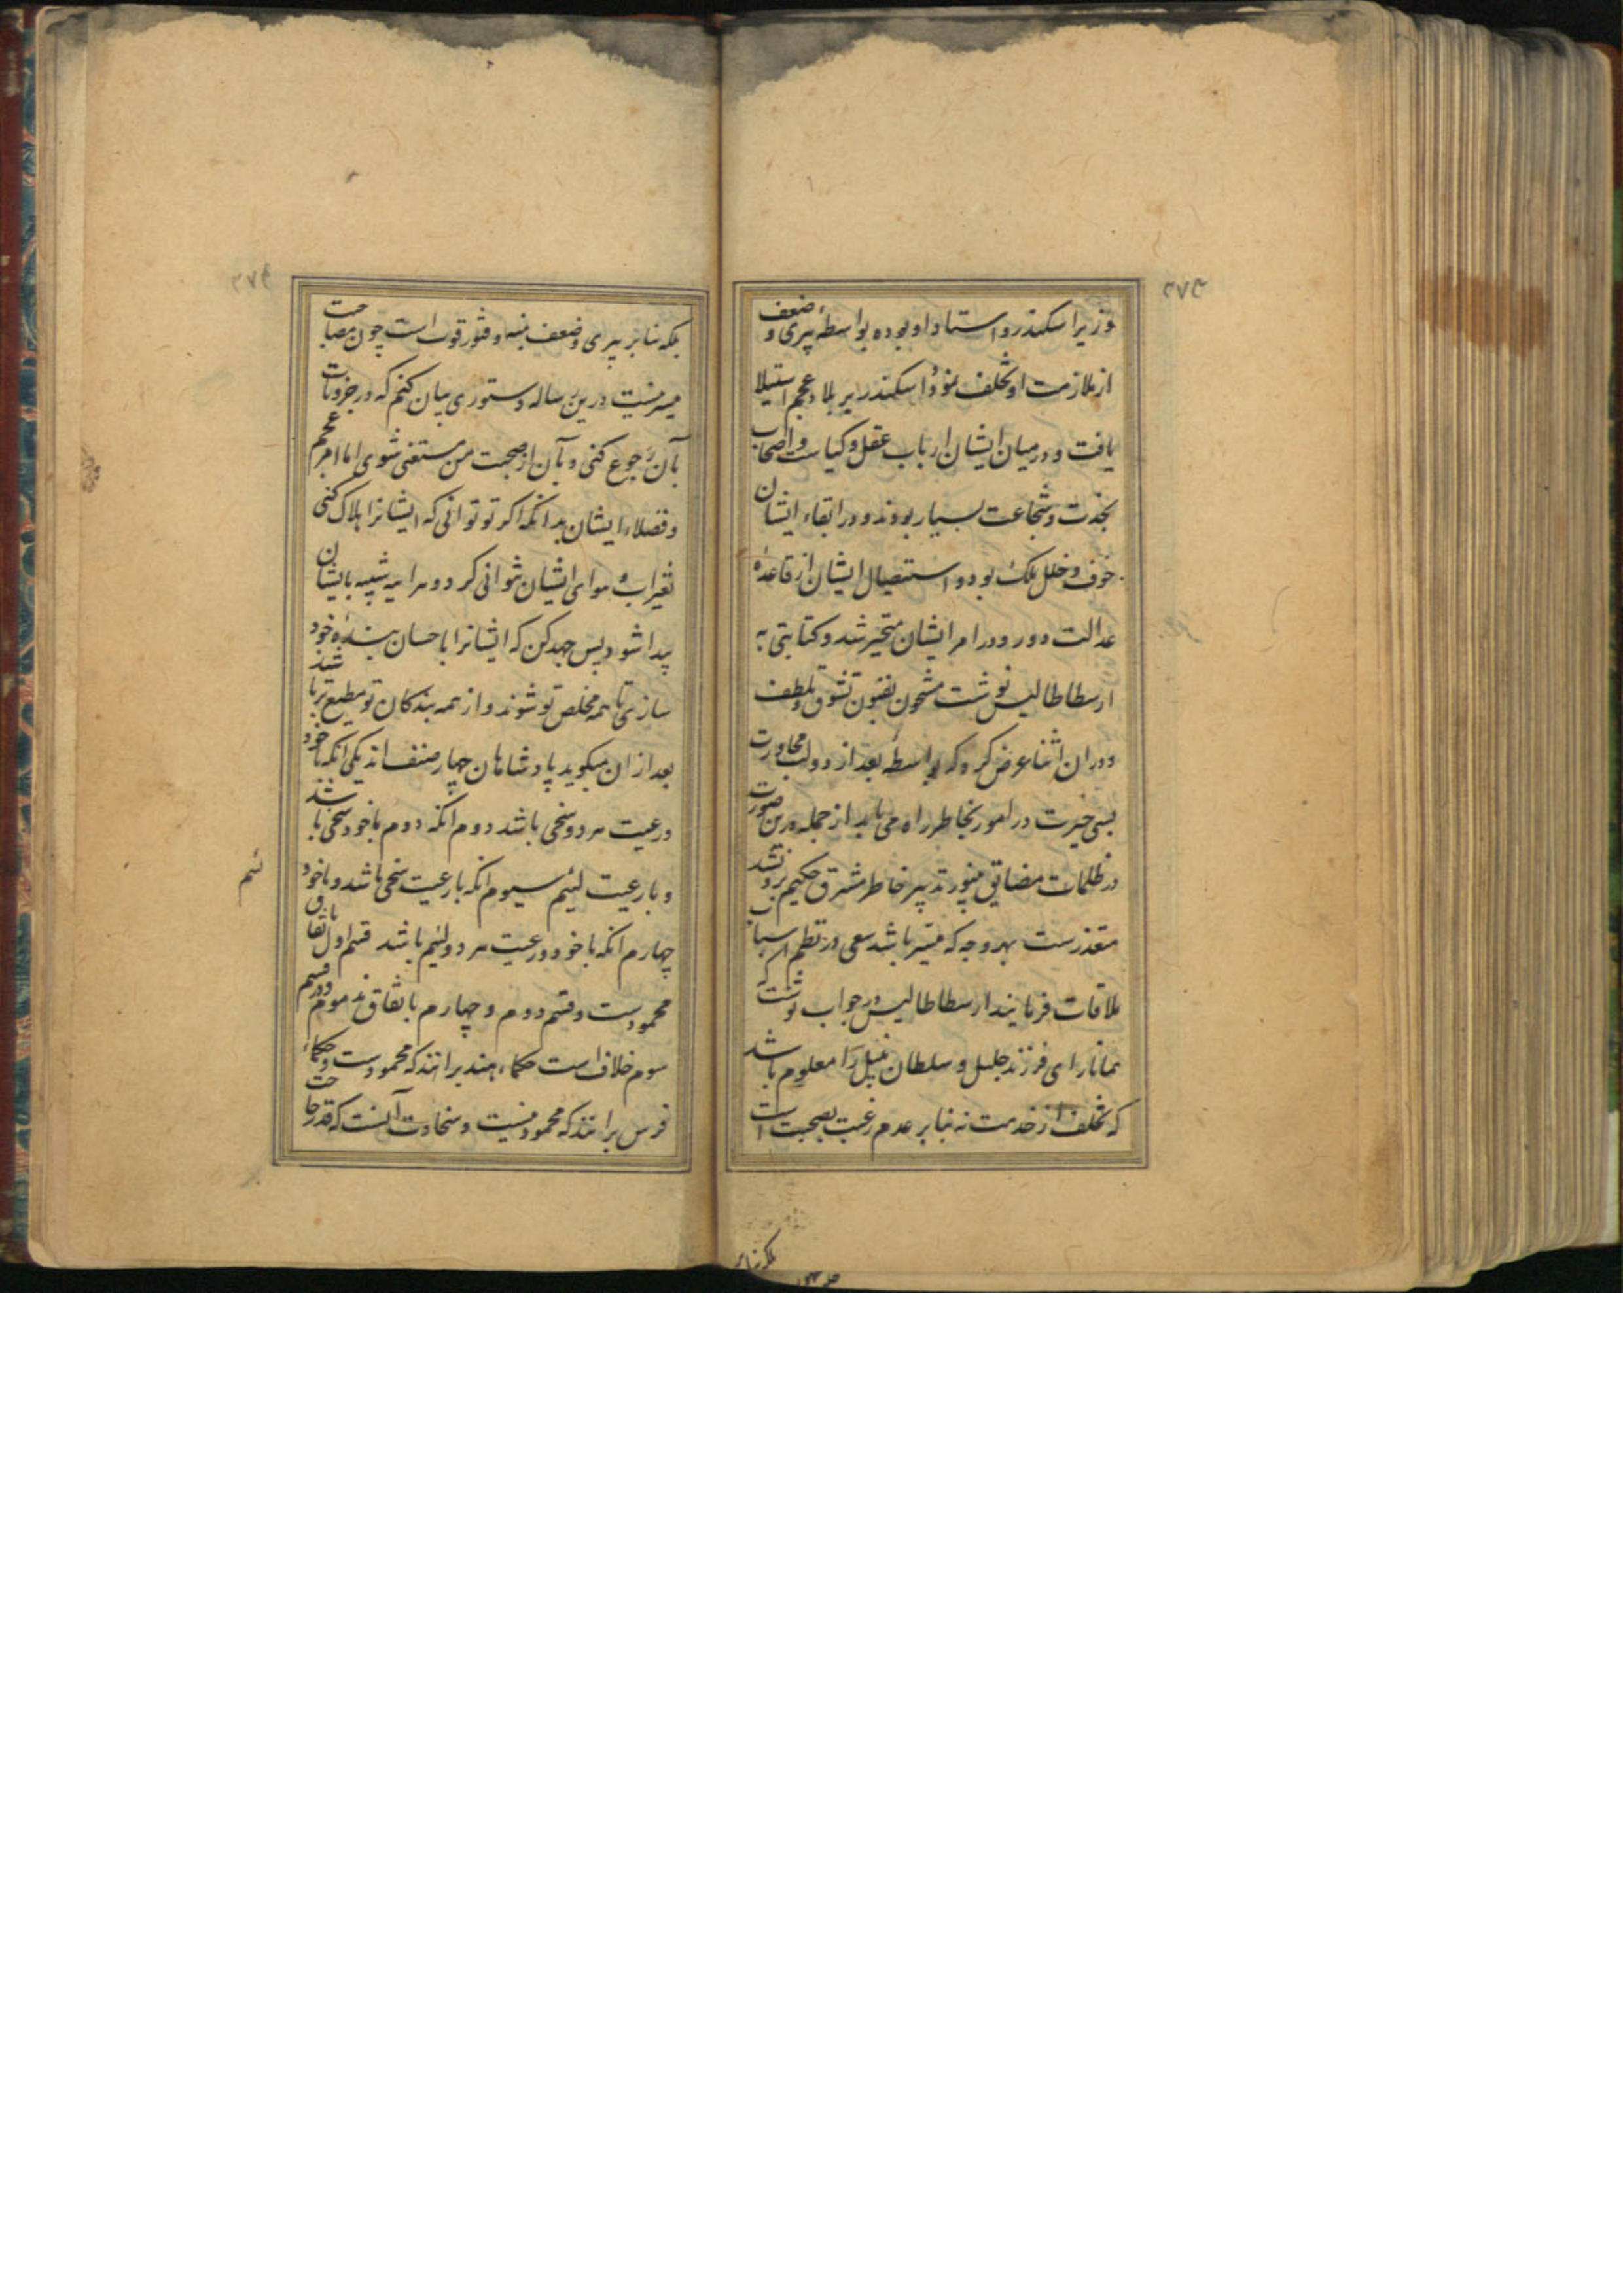 وزیر اسکندر و استاد او بوده بواسطهٔ پیری و ضعف
از ملازمت او تخلف نمود و اسکندر بر بلاد عجم استیلا
یافت و در میان ایشان ارباب عقل و کیاست و اصحاب
نجدت و شجاعت بسیار بودند و در ابقاء ایشان
خوف و خلل ملک بود و استیصال ایشان از قاعدهٔ
عدالت دور و در امر ایشان متحیر شد و کتابتی به
ارسطاطالیس نوشت مشحون بفنون تشوق و تلطف
و در ان اثنا عرض کرد که بواسطهٔ بعد از دولت مجاورت
بسی حیرت در امور بخاطر راه می یابد از جمله درین صورت
در ظلمات مضایق بنور تدبیر خاطر مشرق حکیم برو نشد
متعذرست بهر وجه که میسر باشد سعی در نظم اسباب
ملاقات فرمایند ارسطاطالیس در جواب نوشت که
همانا رای فرزند جلیل و سلطان نبیل را معلوم باشد
که تخلف از خدمت نه بنابر عدم رغبت بصحبت است
بلکه بنابر
بلکه بنابر پیری و ضعف بنیه و فتور قوت است چون مصاحبت
میسر نیست درین رساله دستوری بیان کنم که در جزویات
بآن رجوع کنی و بآن از صحبت من مستغنی شوی اما امر عجم
و فضلاء ایشان بدانکه اگر تو توانی که ایشانرا هلاک کنی
تغیر اب و هوای ایشان نتوانی کرد و هراینه شبیه بایشان
پیدا شود پس جهد کن که ایشانرا باحسان بندهٔ خود
سازی تا همه مخلص تو شوند و از همه بندگان تو مطیع تر باشند
بعد از ان میگوید پادشاهان چهار صنف اند یکی انکه با خود
و رعیت هر دو سخی باشد دوم انکه دوم با خود سخی باشد
و با رعیت لئیم سیوم انکه با رعیت سخی باشد و با خود
لئیم
چهارم انکه با خود و رعیت هر دو لئیم باشد قسم اول باتفاق
محمودست و قسم دوم و چهارم باتفاق مذموم و در قسم
سوم خلاف است حکماء هند برانند که محمودست و حکماء
فرس برانند که محمود نیست و سخاوت آنست که قدر حاجت